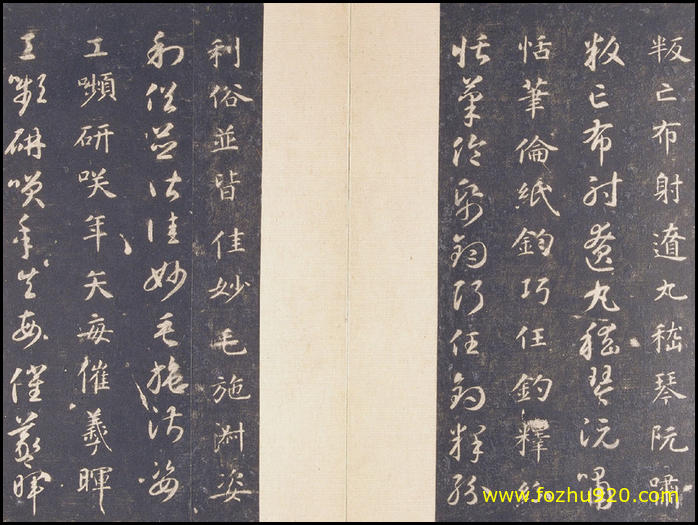 叛亡布射遼丸嵇琴阮嘯
叛亡布射遼丸嵇琴阮嘯
恬筆倫紙鈞巧任釣釋紛
恬筆倫紙鈞巧任釣釋紛
利俗並皆佳妙毛施淑姿
利俗並皆佳妙毛施淑姿
工嚬研咲年矢每催羲暉
工嚬研咲年矢每催羲暉
www.fozhu920.com